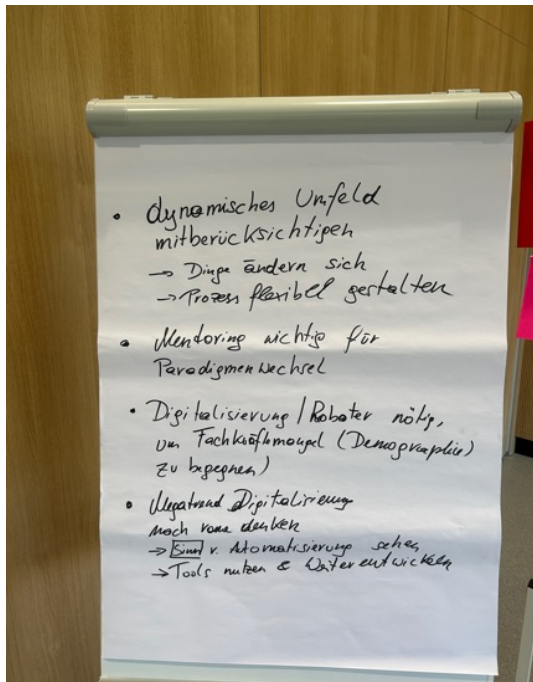 • dynamisches Umfeld
mitberücksichtigen
→ Dinge ändern sich
→ Prozess flexibel gestalten
• Mentoring wichtig für
Paradigmenwechsel
• Digitalisierung / Roboter nötig,
um Fachkräftmangel (Demographie)
zu begegnen)
• Megatrend Digitalisierung
nach vorne denken
→ Sinn v. Automatisierung sehen
→ Tools nutzen & Weiterentwickeln